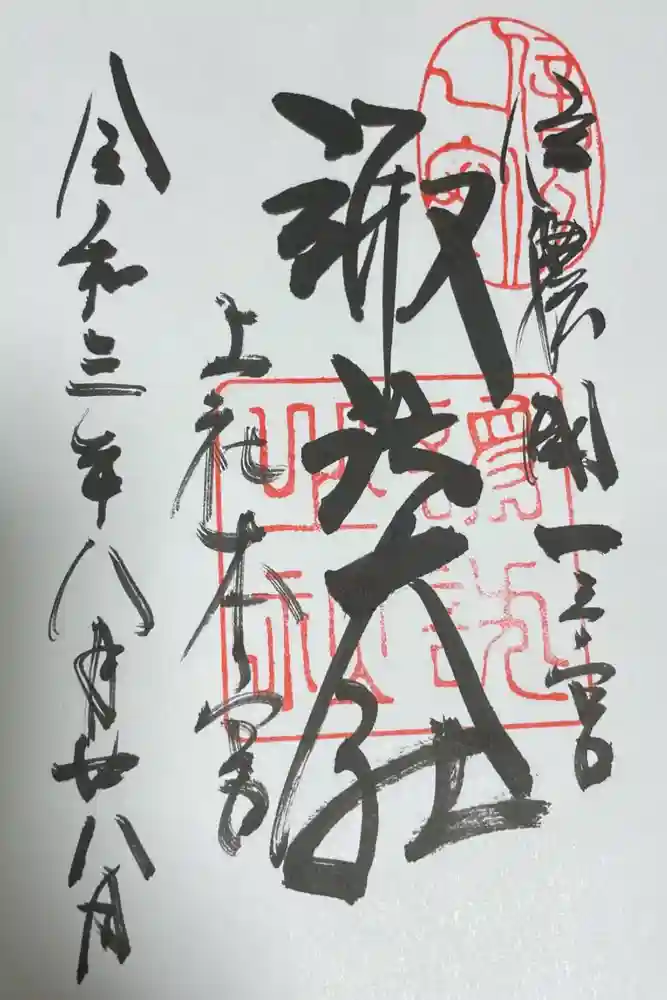 信濃國一之宮
諏訪大社
上社本宮
令和三年八月廿八日